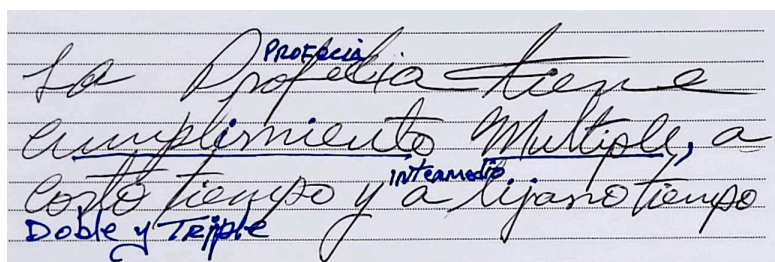 Profecia
La Profecia tiene
cumplimiento Multiple, a
intermedio
corto tiempo y a lijano tiempo
Doble y Triple